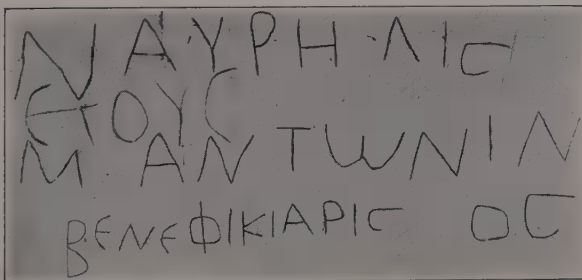 Ν ΑΥΡΗΛΙC
ЄΤΟΥC
Μ ΑΝΤWΝΙΝ
ΒЄΝЄΦΙΚΙΑΡΙC ΟC